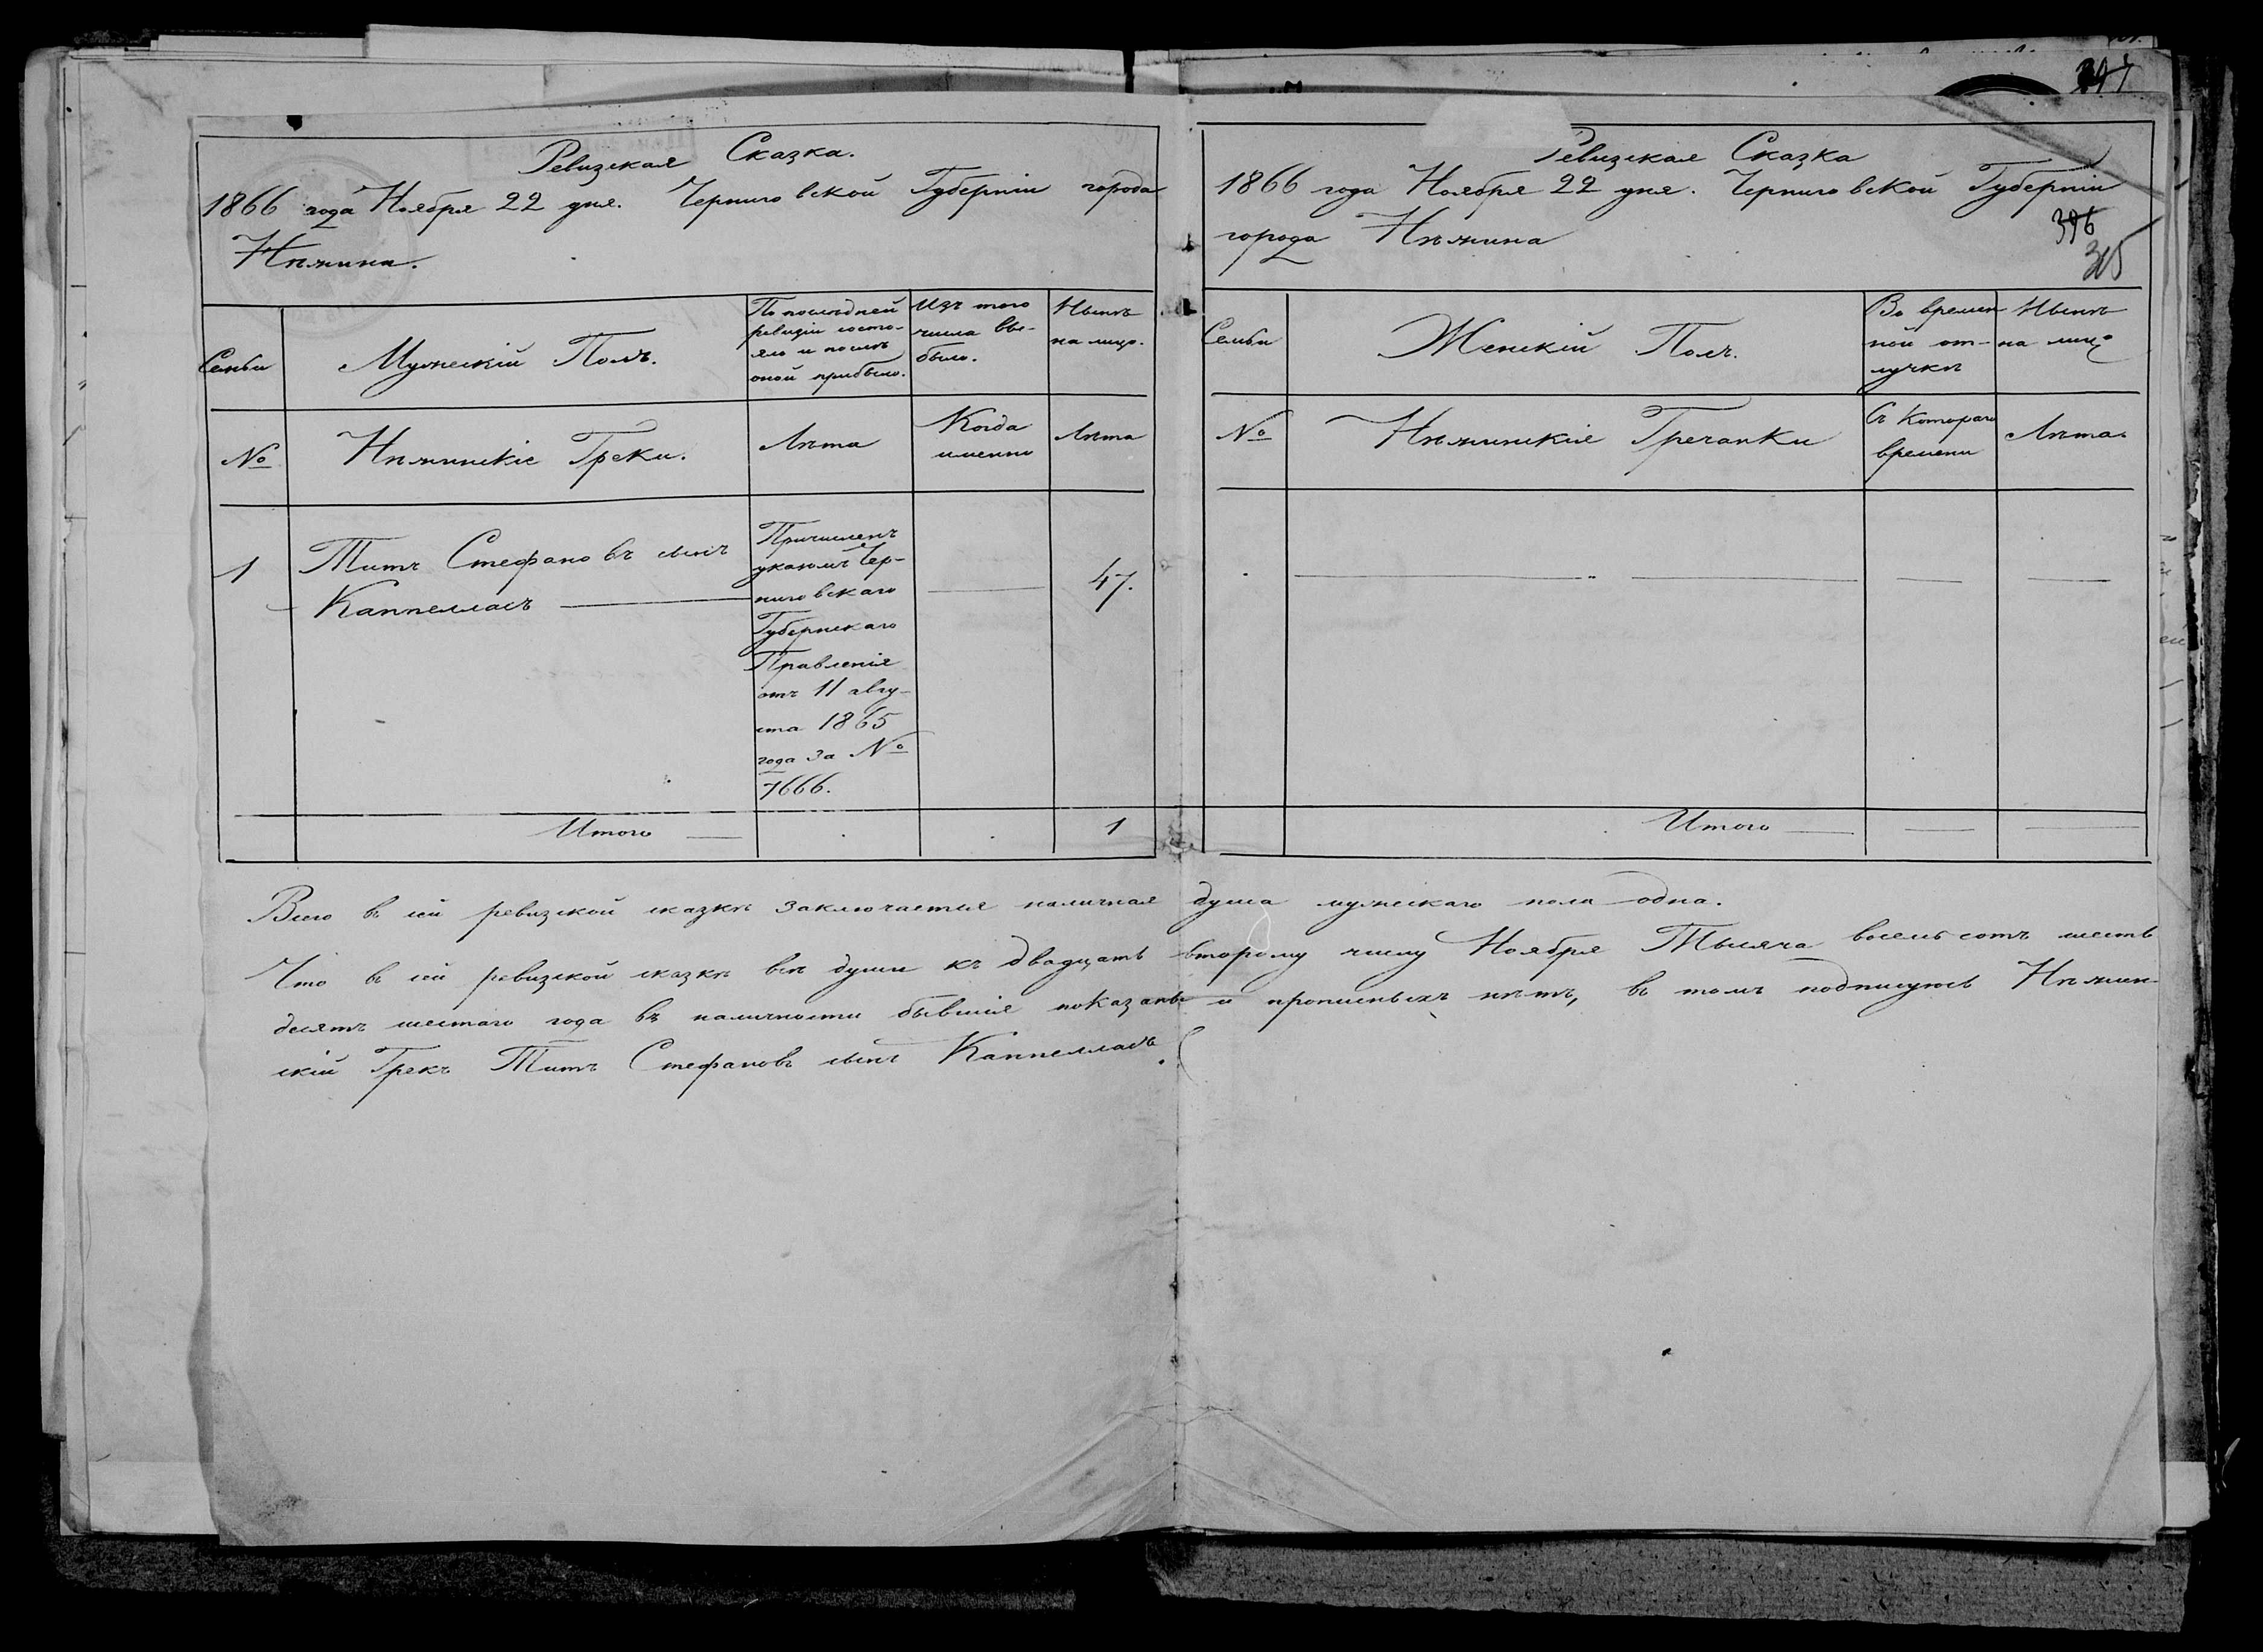 347
Ревизская Сказка.
1866 года Ноября 22 дня. Черниговской Губерніи города
Нѣжина.
Семьи
Мужескій Полъ.
По послѣдней
ревизіи состо-
яло и послѣ
оной прибыло.
Изъ того
числа вы-
было.
Нынѣ
на лицо.
№
Нѣжинскіе Греки.
Лѣта
Когда
именно
Лѣта
1
Титъ Стефановъ сынъ
Каппелласъ
Причисленъ
указомъ Чер-
ниговскаго
Губернскаго
Правленія
отъ 11 авгу-
ста 1865
года за №
7666.
47.
Итого
1
Ревизская Сказка
1866 года Ноября 22 дня. Черниговской Губерніи
города Нѣжина
396
315
Семьи
Женскій Полъ.
Во времен
ной от-
лучкѣ
Нынѣ
на лицо
№
Нѣжинскіе Гречанки
Съ котораго
времени
Лѣта.
Итого
Всего в сей ревизской сказкѣ заключается наличная душа мужескаго пола одна.
Что в сей ревизской сказкѣ всѣ души къ двадцать второму числу Ноября Тысяча восемьсотъ шесть
десятъ шестаго года въ наличности бывшіе показаны и прописныхъ нѣтъ, в томъ подписуюсь Нѣжин-
скій Грекъ Титъ Стефановъ сынъ Каппелласъ.